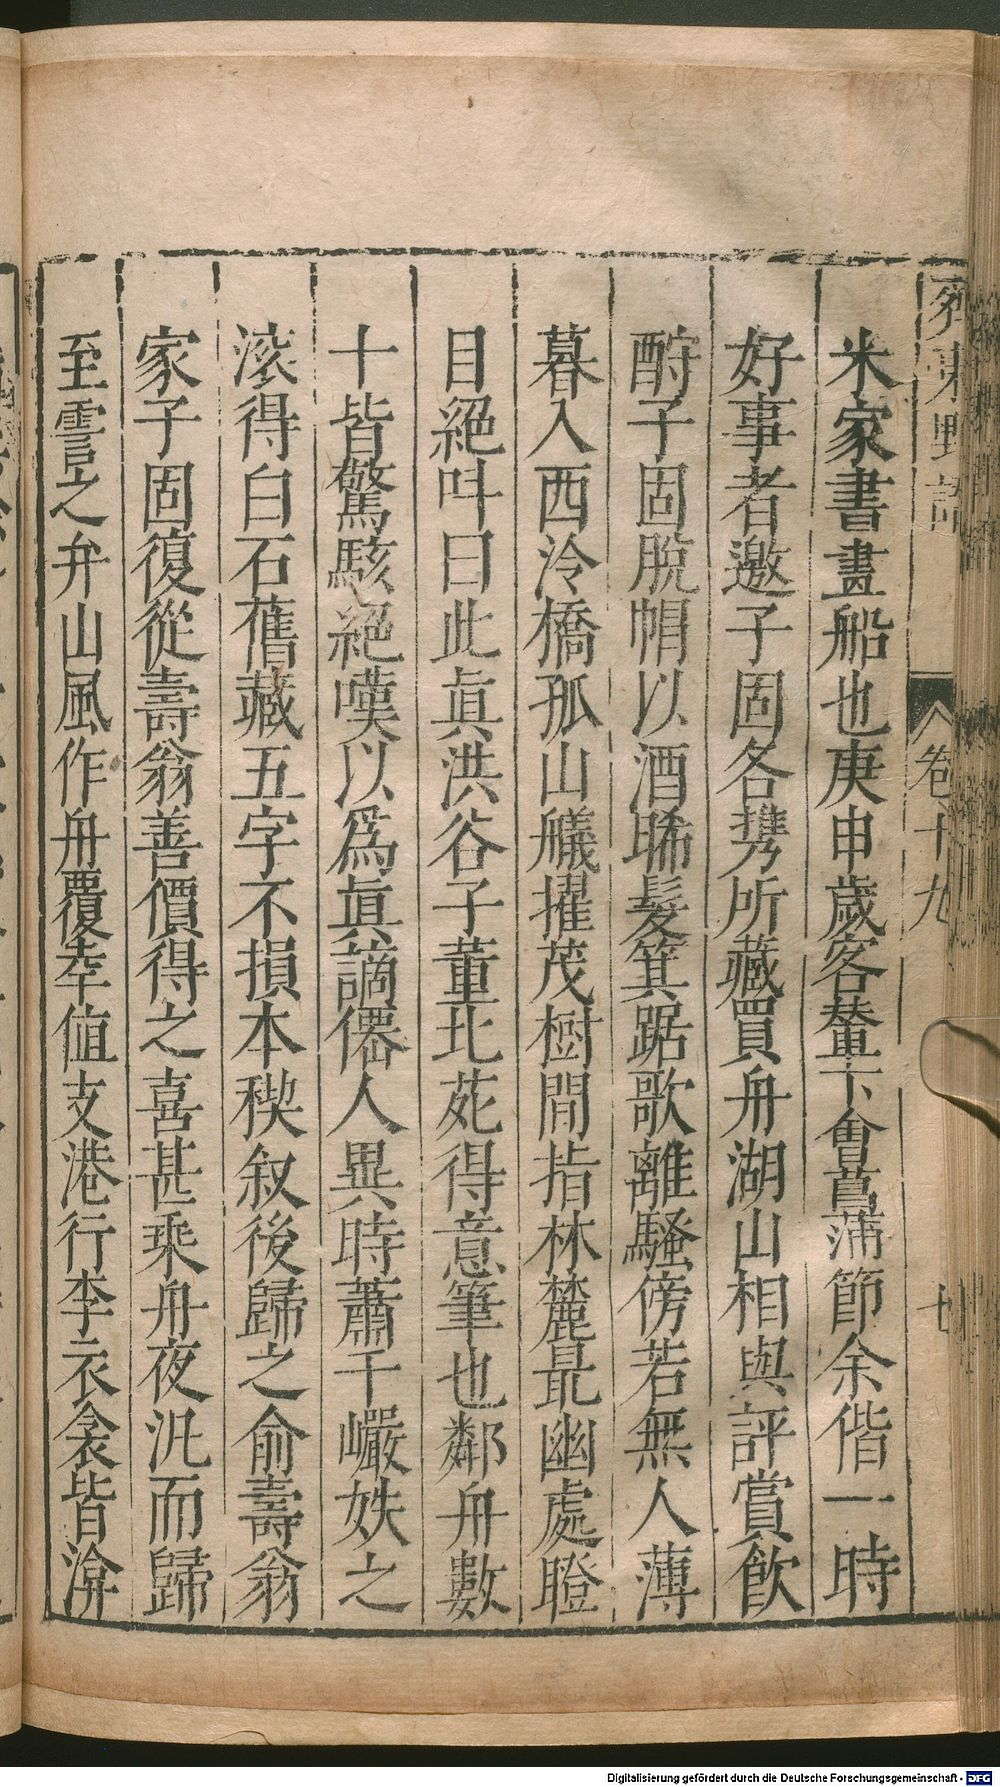 齊東野語 卷十九 七
米家書畫船也庚申歲客輦下會菖蒲節余偕一時
好事者邀子固各携所藏買舟湖山相與評賞飲
酣子固脫帽以酒晞髮箕踞歌離騷傍若無人薄
暮入西泠橋孤山艤擢茂樹間指林麓最幽處瞪
目絕呌曰此眞洪谷子董北苑得意筆也鄰舟數
十皆驚駭絕嘆以爲眞謫僊人異時蕭千巗姪之
滚得白石舊藏五字不損本稧叙後歸之俞壽翁
家子固復從壽翁善價得之喜甚乘舟夜汎而歸
至霅之弁山風作舟覆幸值支港行李衣衾皆渰
Digitalisierung gefördert durch die Deutsche Forschungsgemeinschaft - DFG